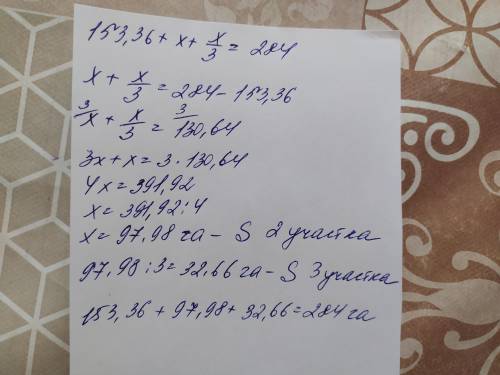 153,36 + x + x/3 = 284
x + x/3 = 284 - 153,36
3/x + x/3 = 3/130,64
3x + x = 3 · 130,64
4x = 391,92
x = 391,92 : 4
x = 97,98 га - S 2 участка
97,98 : 3 = 32,66 га - S 3 участка
153,36 + 97,98 + 32,66 = 284 га